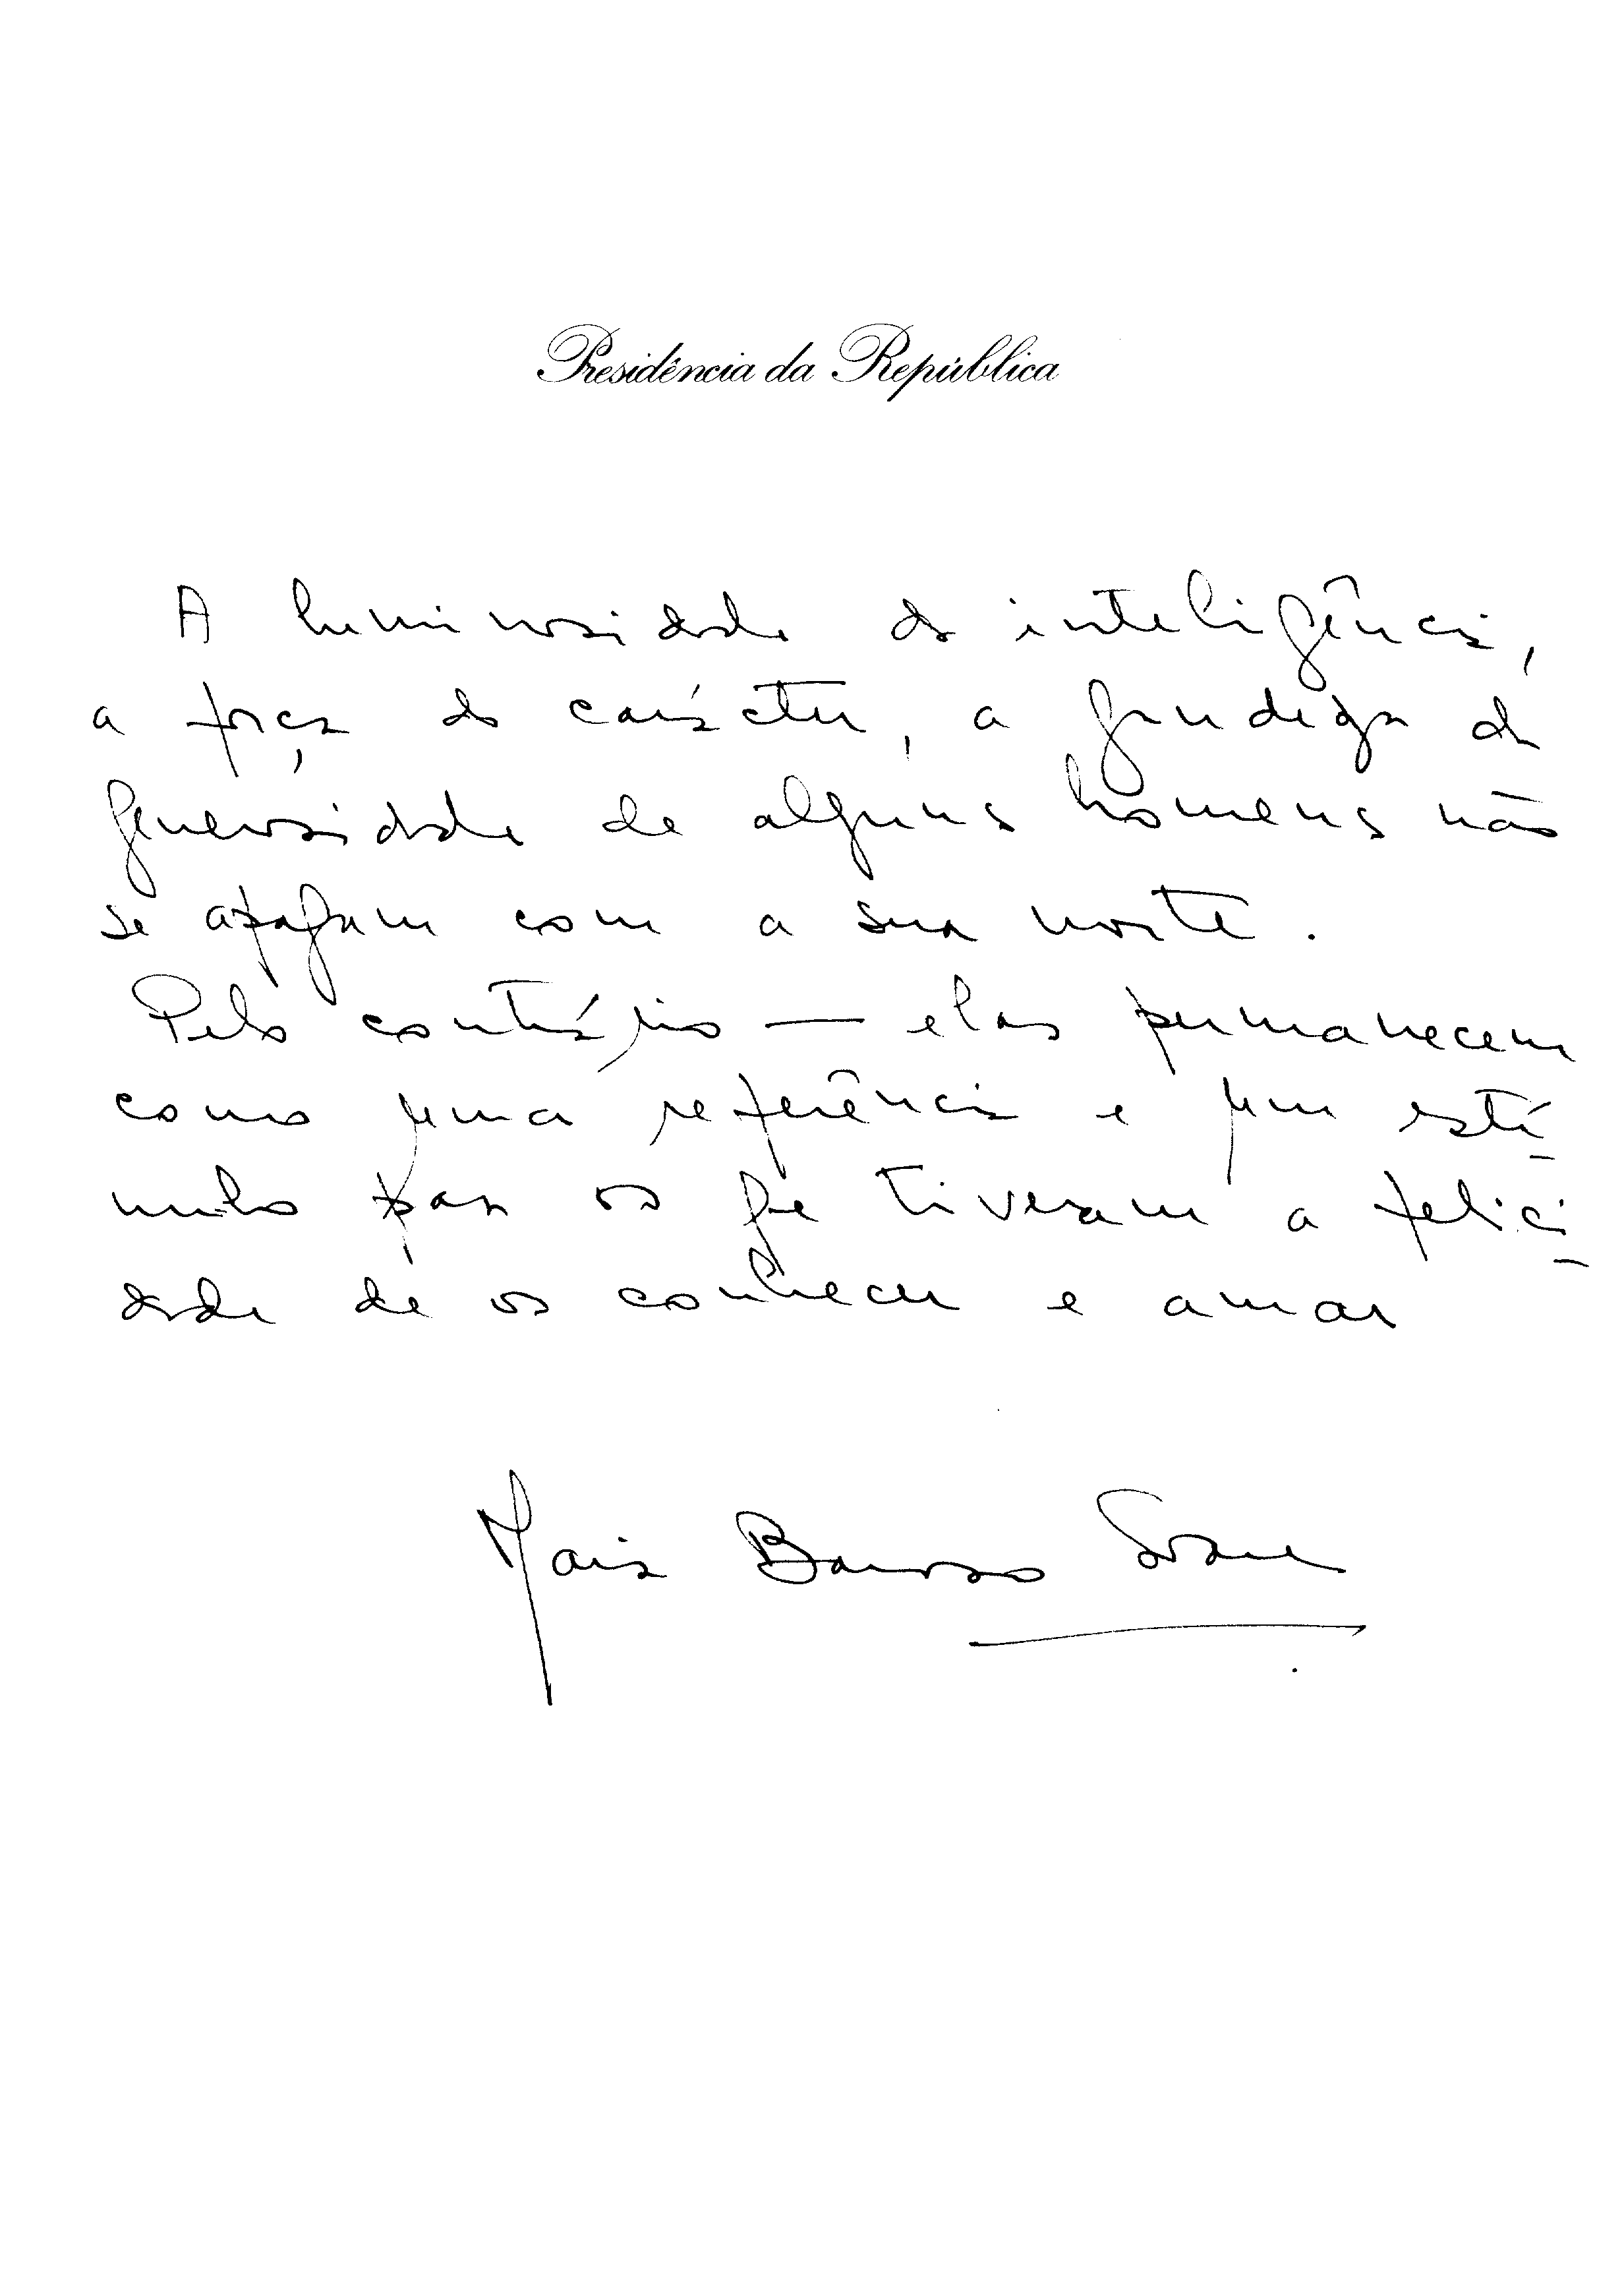 Presidência da República
A luminosidade da inteligência,
a força do carácter, a grandeza da
generosidade de alguns homens não
se apagam com a sua morte.
Pelo contrário — elas permanecem
como uma referência e um estí-
mulo para os que tiveram a felici-
dade de os conhecer e amar
Maria Barroso Soares